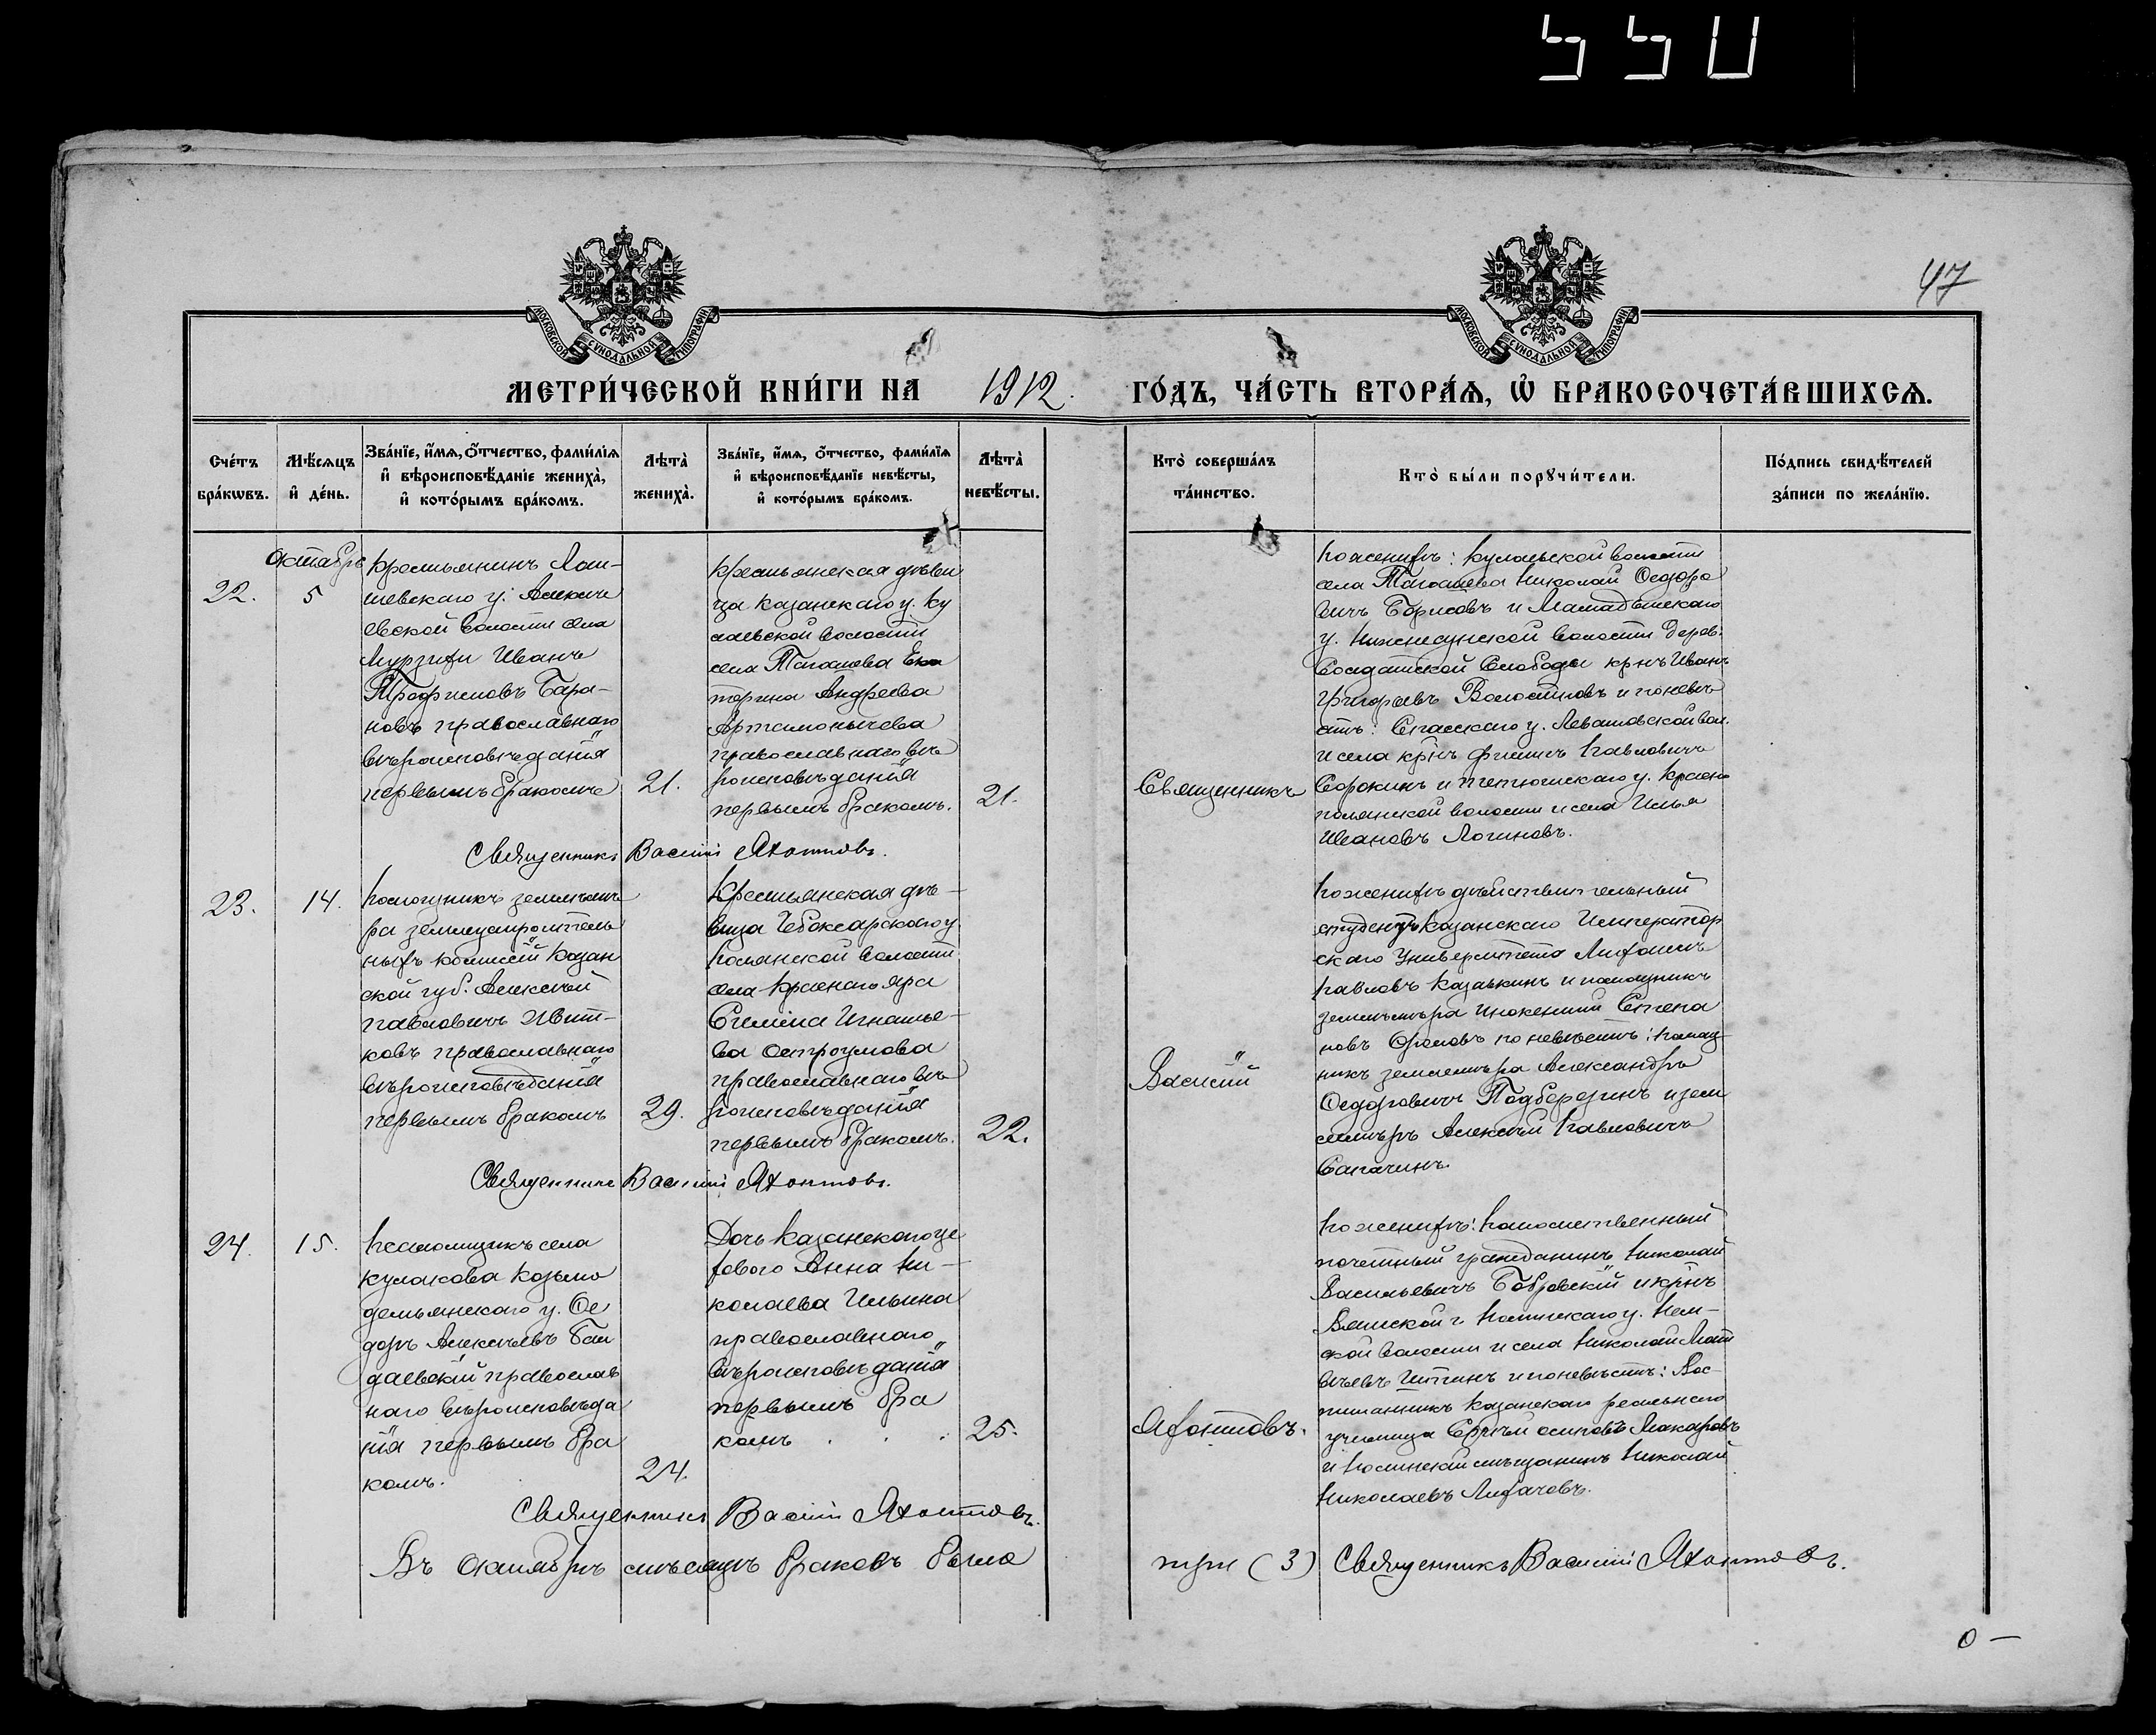 47
МОСКОВСКОЙ СѴНОДАЛЬНОЙ ТИПОГРАФІИ
МОСКОВСКОЙ СѴНОДАЛЬНОЙ ТИПОГРАФІИ
МЕТРИ́ЧЕСКОЙ КНИ́ГИ НА 1912. ГО́ДЪ, ЧА́СТЬ ВТОРА́Я, Ѽ БРАКОСОЧЕТА́ВШИХСЯ.
Сче́тъ бра́кѡвъ.
Мѣ́сяцъ и҆ де́нь.
Зва́нїе, и҆́мя, ѻ҆́тчество, фами́лїя и҆ вѣроисповѣ́данїе жениха̀, и҆ кото́рымъ бра́комъ.
Лѣта̀ жениха̀.
Зва́нїе, и҆́мя, ѻ҆́тчество, фами́лїя и҆ вѣроисповѣ́данїе невѣ́сты, и҆ кото́рымъ бра́комъ.
Лѣта̀ невѣ́сты.
Кто̀ соверша́лъ та́инство.
Кто̀ бы́ли порꙋчи́тели.
По́дпись свидѣ́телей за́писи по жела́нїю.
22.
Октябрь
5
Крестьянинъ Лаи-
шевскаго у. Алексе
евской волости села
Мурзихи Иванъ
Трофимовъ Бара-
новъ православнаго
вѣроисповѣданія
первымъ бракомъ
21.
Крестьянская дѣви
ца Казанскаго у. Ку
лаевской волости
села Тагашева Ека
терина Андреева
Артамонычева
православнаго вѣ
роисповѣданія
первымъ бракомъ.
21.
Священникъ
По женихѣ: Кулаевской волости
села Тагашева Николай Ѳедоро
вичъ Борисовъ и Мамадышскаго
у. волости дерев.
Солдатской Слободы крнъ Иванъ
Григорьевъ и по невѣ
стѣ: Спасскаго у. Левашовской вол.
и села крнъ Филипъ Павловичъ
Сорокинъ и Тетюшскаго у. Красно
полянской волости и села Илья
Ивановъ Логиновъ.
Священникъ Василій Яхонтовъ.
23.
14.
Помощникъ землемѣ
ра землеустроитель
ныхъ комиссій Казан
ской губ. Алексѣй
Павловичъ
ковъ православнаго
вѣроисповѣданія
первымъ бракомъ
29.
Крестьянская дѣ-
вица Чебоксарскаго у
волости
села Краснаго Яра
Игнатье-
ва Остроумова
православнаго вѣ
роисповѣданія
первымъ бракомъ.
22.
Василій
По женихѣ дѣйствительный
студентъ Казанскаго Император
скаго Университета
Павловъ и помощникъ
землемѣра Инокентій Степа
новъ по невѣстѣ: помощ
никъ землемѣра Александръ
Ѳедоровичъ Подберезинъ и зем
лемѣръ Алексѣй Павловичъ
Священникъ Василій Яхонтовъ.
24.
15.
Псаломщикъ села
Кулакова Козьмо
демьянскаго у. Ѳе
доръ Алексѣевъ
даевскій православ
наго вѣроисповѣда
нія первымъ бра
комъ.
24.
Дочь Казанскаго це
хового Анна Ни-
колаева Ильина
православнаго
вѣроисповѣданія
первымъ бра
комъ . . .
25.
Яхонтовъ.
По женихѣ: Потомственный
почетный гражданинъ Николай
Васильевичъ Бобровскій и крнъ
Вятской г. Нолинскаго у. Нем-
ской волости и села Николай Мат
вѣевъ и по невѣстѣ: Вос
питанникъ Казанскаго реальнаго
училища Сергѣй Осиповъ Макаровъ
и мѣщанинъ Николай
Николаевъ Лихачовъ.
Священникъ Василій Яхонтовъ.
Въ Октябрѣ мѣсяцѣ браковъ было три (3) Священникъ Василій Яхонтовъ.